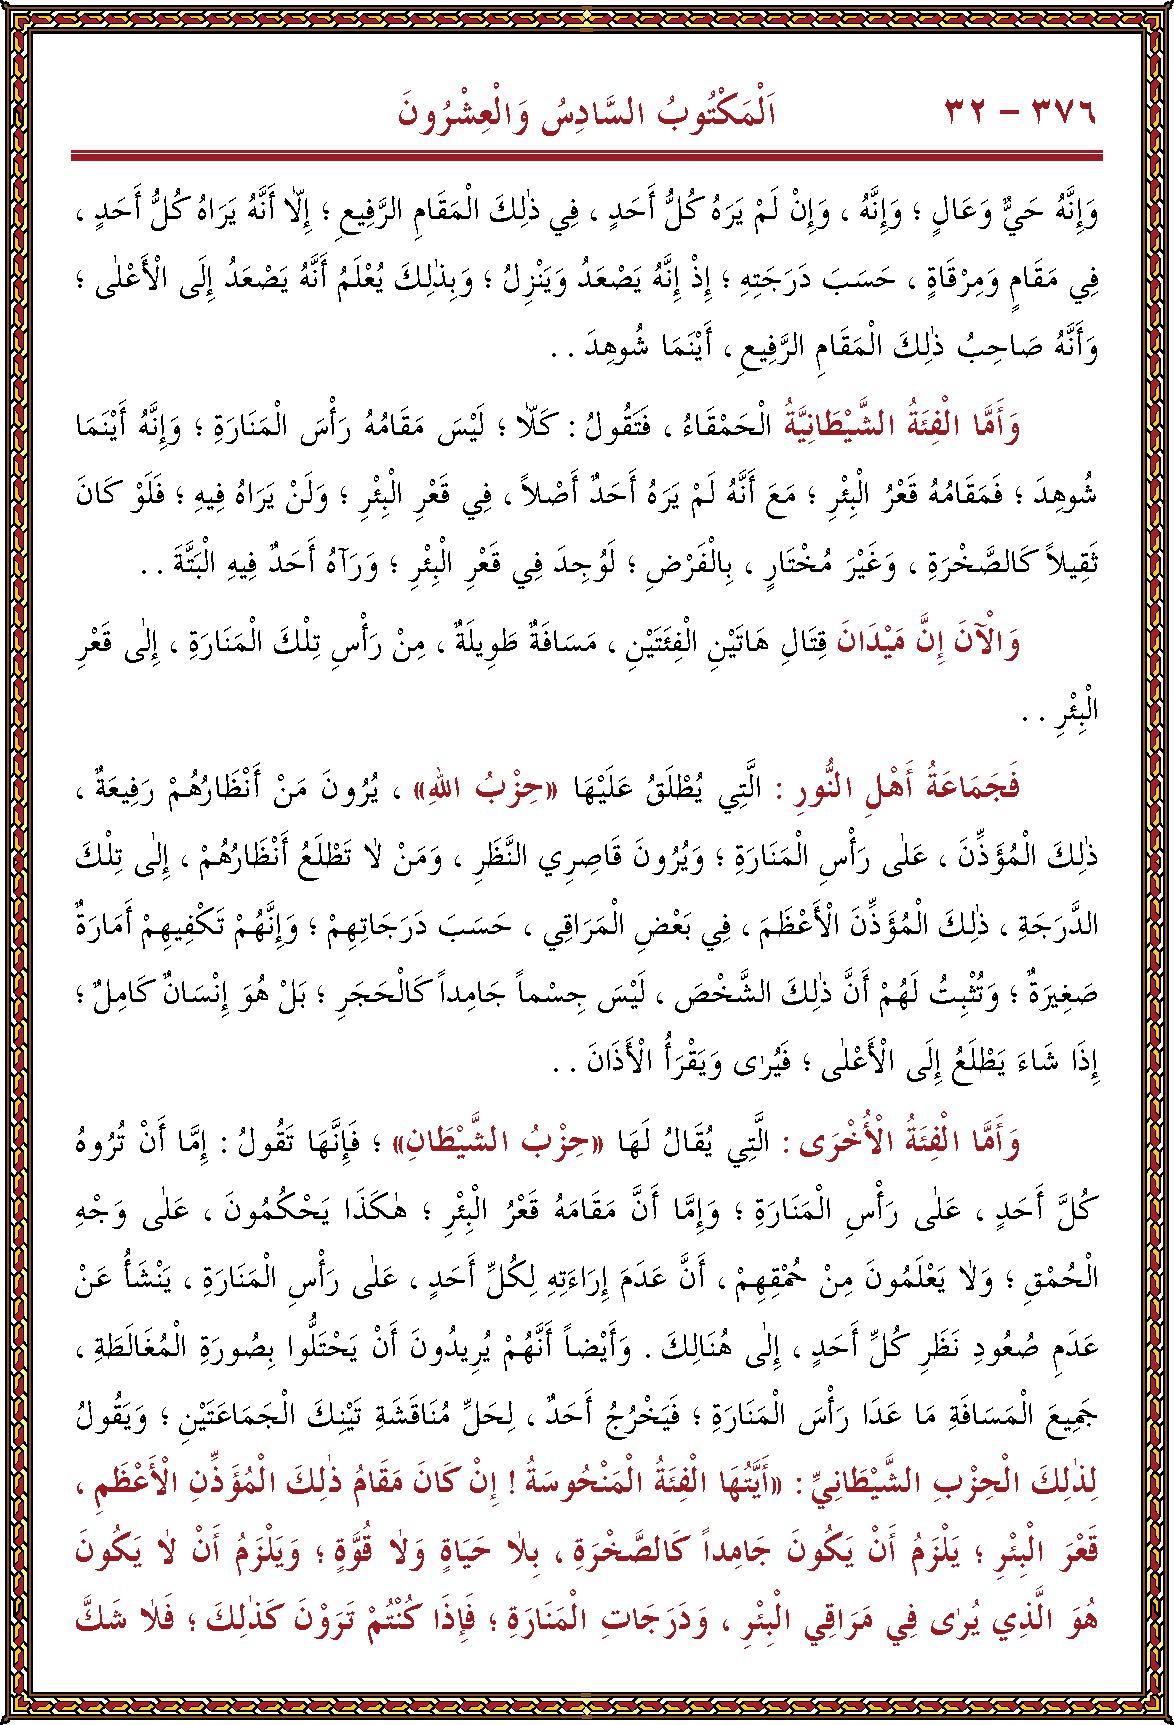 ٣٧٦ – ٣٢ اَلْمَكْتُوبُ السَّادِسُ وَالْعِشْرُونَ
وَإِنَّهُ حَيٌّ وَعَالٍ ؛ وَإِنَّهُ ، وَإِنْ لَمْ يَرَهُ كُلُّ أَحَدٍ ، فِي ذٰلِكَ الْمَقَامِ الرَّفِيعِ ؛ إِلَّا أَنَّهُ يَرَاهُ كُلُّ أَحَدٍ ،
فِي مَقَامٍ وَمِرْقَاةٍ ، حَسَبَ دَرَجَتِهِ ؛ إِذْ إِنَّهُ يَصْعَدُ وَيَنْزِلُ ؛ وَبِذٰلِكَ يُعْلَمُ أَنَّهُ يَصْعَدُ إِلَى الْأَعْلٰى ؛
وَأَنَّهُ صَاحِبُ ذٰلِكَ الْمَقَامِ الرَّفِيعِ ، أَيْنَمَا شُوهِدَ . .
وَأَمَّا الْفِئَةُ الشَّيْطَانِيَّةُ الْحَمْقَاءُ ، فَتَقُولُ : كَلَّا ؛ لَيْسَ مَقَامُهُ رَأْسَ الْمَنَارَةِ ؛ وَإِنَّهُ أَيْنَمَا
شُوهِدَ ؛ فَمَقَامُهُ قَعْرُ الْبِئْرِ ؛ مَعَ أَنَّهُ لَمْ يَرَهُ أَحَدٌ أَصْلاً ، فِي قَعْرِ الْبِئْرِ ؛ وَلَنْ يَرَاهُ فِيهِ ؛ فَلَوْ كَانَ
ثَقِيلاً كَالصَّخْرَةِ ، وَغَيْرَ مُخْتَارٍ ، بِالْفَرْضِ ؛ لَوُجِدَ فِي قَعْرِ الْبِئْرِ ؛ وَرَآهُ أَحَدٌ فِيهِ الْبَتَّةَ . .
وَالْآنَ إِنَّ مَيْدَانَ قِتَالِ هَاتَيْنِ الْفِئَتَيْنِ ، مَسَافَةٌ طَوِيلَةٌ ، مِنْ رَأْسِ تِلْكَ الْمَنَارَةِ ، إِلٰى قَعْرِ
الْبِئْرِ . .
فَجَمَاعَةُ أَهْلِ النُّورِ : الَّتِي يُطْلَقُ عَلَيْهَا «حِزْبُ اللهِ» ، يُرُونَ مَنْ أَنْظَارُهُمْ رَفِيعَةٌ ،
ذٰلِكَ الْمُؤَذِّنَ ، عَلٰى رَأْسِ الْمَنَارَةِ ؛ وَيُرُونَ قَاصِرِي النَّظَرِ ، وَمَنْ لَا تَطْلَعُ أَنْظَارُهُمْ ، إِلٰى تِلْكَ
الدَّرَجَةِ ، ذٰلِكَ الْمُؤَذِّنَ الْأَعْظَمَ ، فِي بَعْضِ الْمَرَاقِي ، حَسَبَ دَرَجَاتِهِمْ ؛ وَإِنَّهُمْ تَكْفِيهِمْ أَمَارَةٌ
صَغِيرَةٌ ؛ وَتُثْبِتُ لَهُمْ أَنَّ ذٰلِكَ الشَّخْصَ ، لَيْسَ جِسْماً جَامِداً كَالْحَجَرِ ؛ بَلْ هُوَ إِنْسَانٌ كَامِلٌ ؛
إِذَا شَاءَ يَطْلَعُ إِلَى الْأَعْلٰى ؛ فَيُرٰى وَيَقْرَأُ الْأَذَانَ . .
وَأَمَّا الْفِئَةُ الْأُخْرَى : الَّتِي يُقَالُ لَهَا «حِزْبُ الشَّيْطَانِ» ؛ فَإِنَّهَا تَقُولُ : إِمَّا أَنْ تُرُوهُ
كُلَّ أَحَدٍ ، عَلٰى رَأْسِ الْمَنَارَةِ ؛ وَإِمَّا أَنَّ مَقَامَهُ قَعْرُ الْبِئْرِ ؛ هٰكَذَا يَحْكُمُونَ ، عَلٰى وَجْهِ
الْحُمْقِ ؛ وَلَا يَعْلَمُونَ مِنْ حُمْقِهِمْ ، أَنَّ عَدَمَ إِرَاءَتِهِ لِكُلِّ أَحَدٍ ، عَلٰى رَأْسِ الْمَنَارَةِ ، يَنْشَأُ عَنْ
عَدَمِ صُعُودِ نَظَرِ كُلِّ أَحَدٍ ، إِلٰى هُنَالِكَ . وَأَيْضاً أَنَّهُمْ يُرِيدُونَ أَنْ يَحْتَلُّوا بِصُورَةِ الْمُغَالَطَةِ ،
جَمِيعَ الْمَسَافَةِ مَا عَدَا رَأْسَ الْمَنَارَةِ ؛ فَيَخْرُجُ أَحَدٌ ، لِحَلِّ مُنَاقَشَةِ تَيْنِكَ الْجَمَاعَتَيْنِ ؛ وَيَقُولُ
لِذٰلِكَ الْحِزْبِ الشَّيْطَانِيِّ : «أَيَّتُهَا الْفِئَةُ الْمَنْحُوسَةُ ! إِنْ كَانَ مَقَامُ ذٰلِكَ الْمُؤَذِّنِ الْأَعْظَمِ ،
قَعْرَ الْبِئْرِ ؛ يَلْزَمُ أَنْ يَكُونَ جَامِداً كَالصَّخْرَةِ ، بِلَا حَيَاةٍ وَلَا قُوَّةٍ ؛ وَيَلْزَمُ أَنْ لَا يَكُونَ
هُوَ الَّذِي يُرٰى فِي مَرَاقِي الْبِئْرِ ، وَدَرَجَاتِ الْمَنَارَةِ ؛ فَإِذَا كُنْتُمْ تَرَوْنَ كَذٰلِكَ ؛ فَلَا شَكَّ